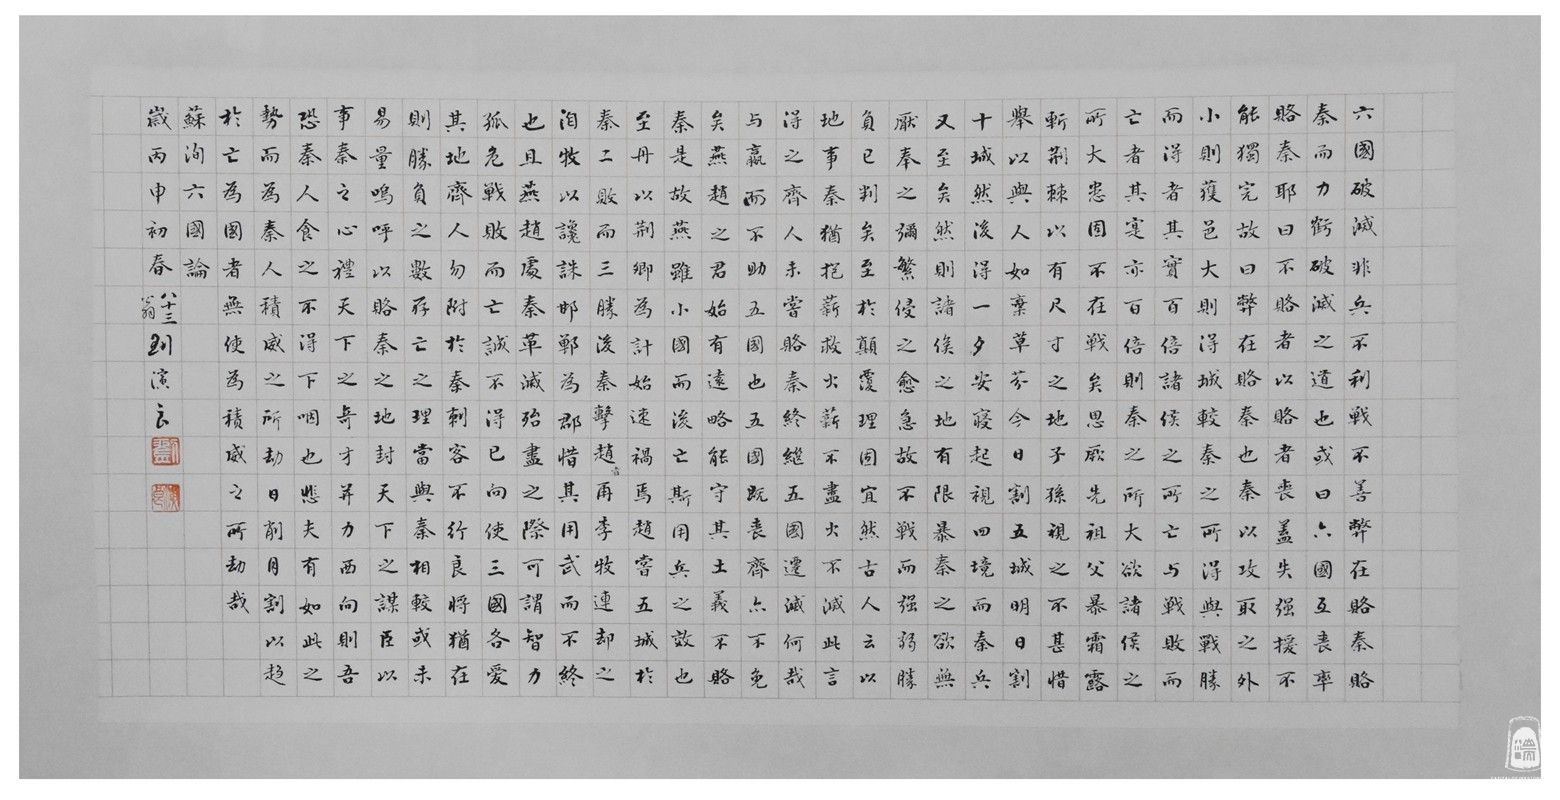 六國破滅非兵不利戰不善弊在賂秦賂
秦而力虧破滅之道也或曰六國互喪率
賂秦耶曰不賂者以賂者喪蓋失强援不
能獨完故曰弊在賂秦也秦以攻取之外
小則獲邑大則得城較秦之所得與戰勝
而得者其實百倍諸侯之所亡与戰敗而
亡者其寔亦百倍則秦之所大欲諸侯之
所大患固不在戰矣思厥先祖父暴霜露
斬荆棘以有尺寸之地子孫視之不甚惜
舉以與人如棄草芥今日割五城明日割
十城然後得一夕安寢起視四境而秦兵
又至矣然則諸侯之地有限暴秦之欲無
厭奉之彌繁侵之愈急故不戰而强弱勝
負已判矣至於顛覆理固宜然古人云以
地事秦猶抱薪救火薪不盡火不滅此言
得之齊人未嘗賂秦終繼五國遷滅何哉
与嬴而不助五國也五國既喪齊亦不免
矣燕趙之君始有遠略能守其土義不賂
秦是故燕雖小國而後亡斯用兵之效也
至丹以荆卿為計始速禍焉趙嘗五城於
秦二敗而三勝後秦擊趙者再李牧連却之
洎牧以讒誅邯鄲為郡惜其用武而不終
也且燕趙處秦革滅殆盡之際可謂智力
孤危戰敗而亡誠不得已向使三國各愛
其地齊人勿附於秦刺客不行良將猶在
則勝負之數存亡之理當與秦相較或未
易量嗚呼以賂秦之地封天下之謀臣以
事秦之心禮天下之奇才并力西向則吾
恐秦人食之不得下咽也悲夫有如此之
勢而為秦人積威之所劫日削月割以趨
於亡為國者無使為積威之所劫哉
蘇洵六國論
歲丙申初春八十三翁劉演良